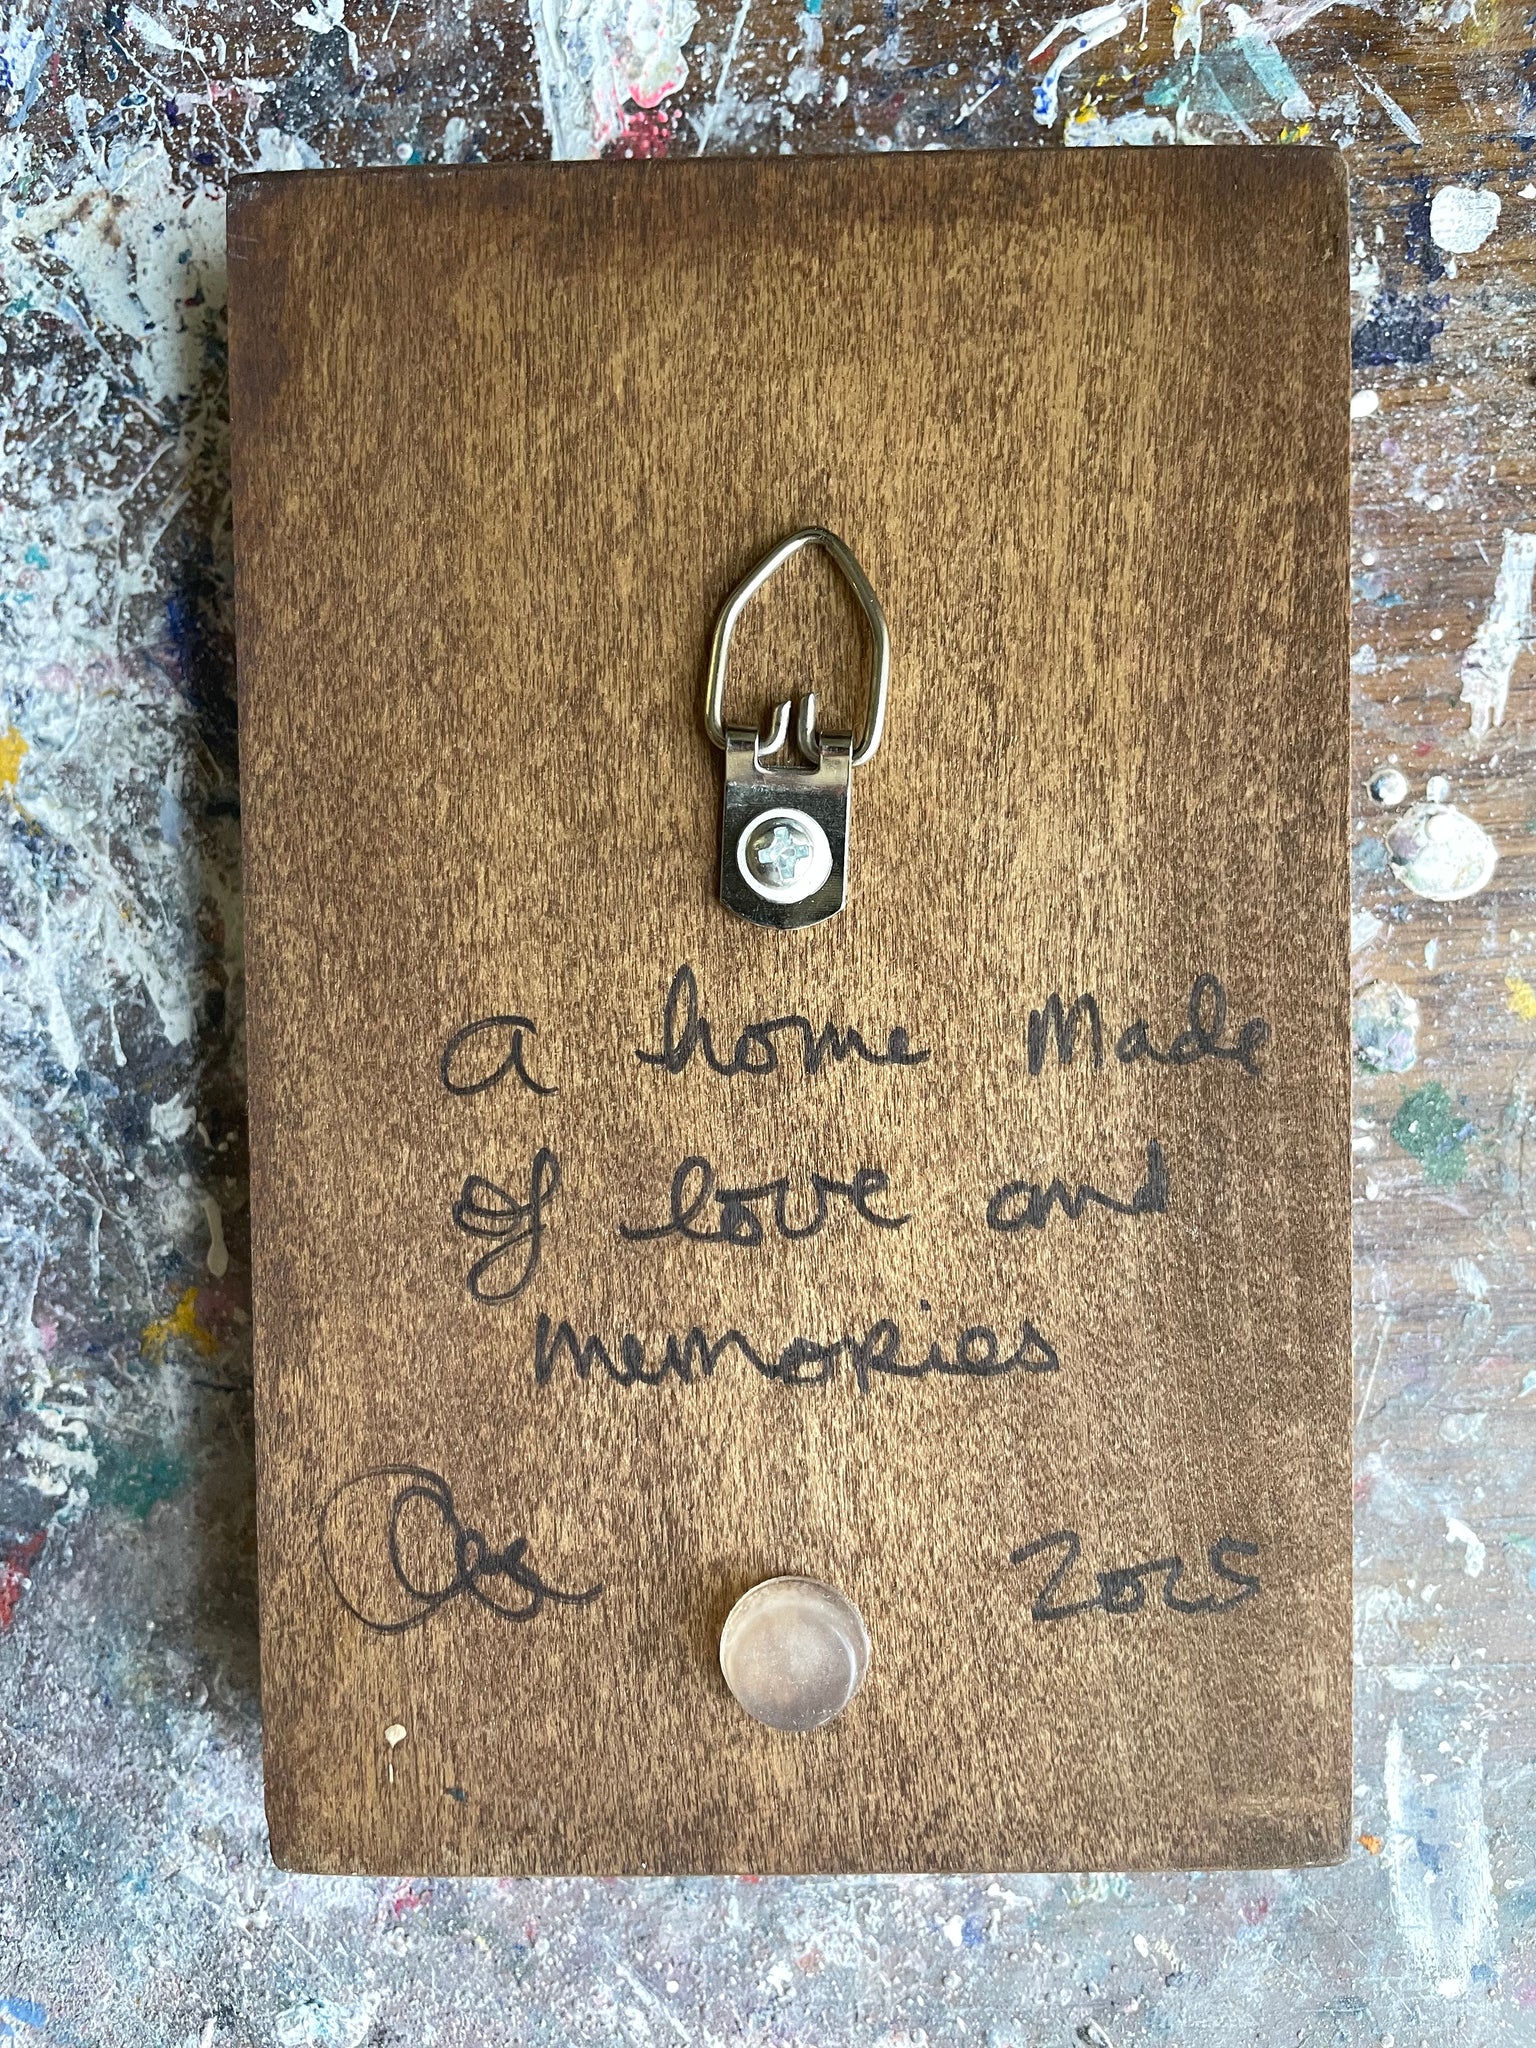 a home Made
of love and
memories
2025